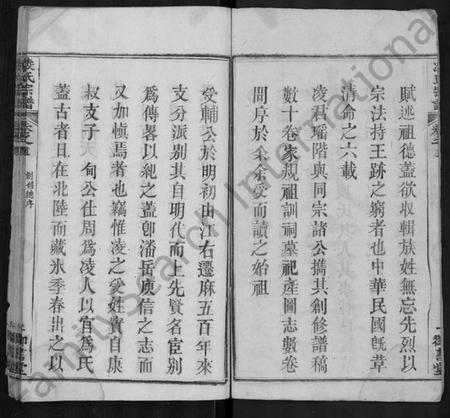 賦述祖德蓋欲収輯族姓無忘先烈以
宗法持王跡之窮者也中華民國旣革
清命之六載
凌君瑞階與同宗諸公擕其創修譜稿
數十卷家規祖訓祠墓祀產圖志數卷
問序於余余受而讀之始祖
受輔公於明初由江右遷麻五百年來
支分派別其自明代而上先賢名宦別
爲傳畧以紀之蓋卽潘岳庾信之志而
又加慎焉者也竊惟凌之受姓實自康
叔支子 甸公仕周爲凌人以官爲氏
蓋古者日在北陸而藏氷季春出之以
凌氏宗譜
創修譜序
FamilySearch International